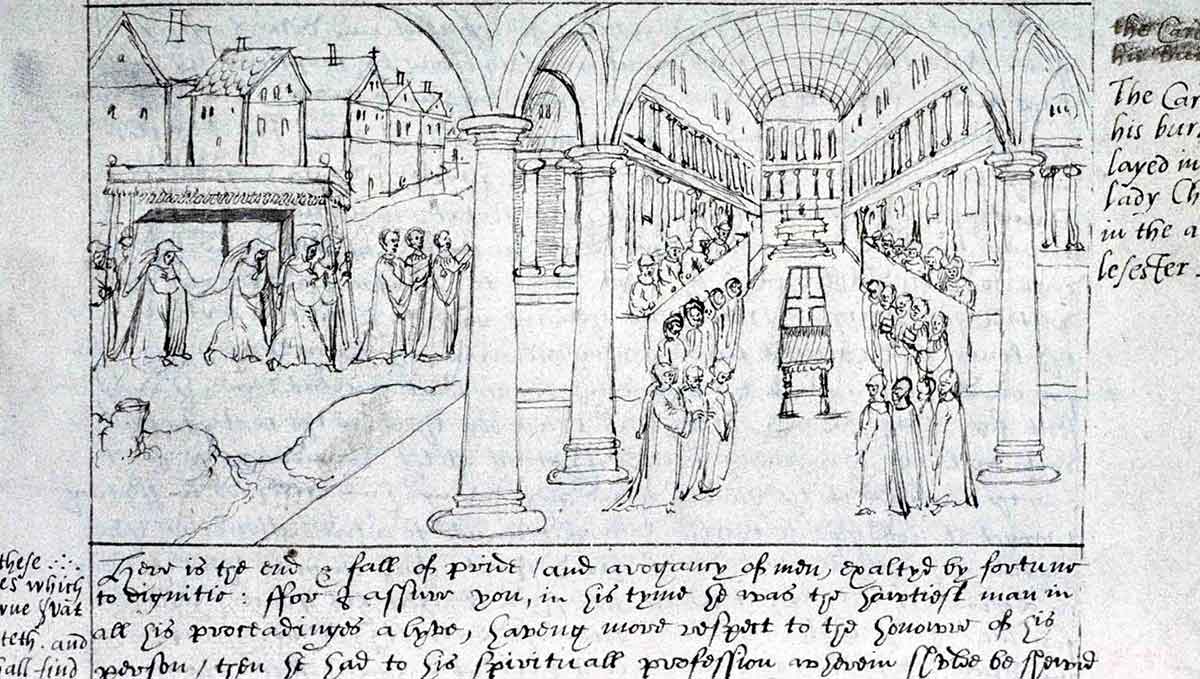 the Car
his bur
The Car
his bur
layed in
lady Ch
in the a
lesester.
Here is the end & fall of pride / and arogancy of men, exaltyd by fortune
to dignitie: ffor I assure you, in his tyme he was the hawtiest man in
all his proceadinges alyve, haveng more respect to the honowre of his
person / then he had to his spirituall profession wherein shuld be shewed
these
es which
teth. and
all find